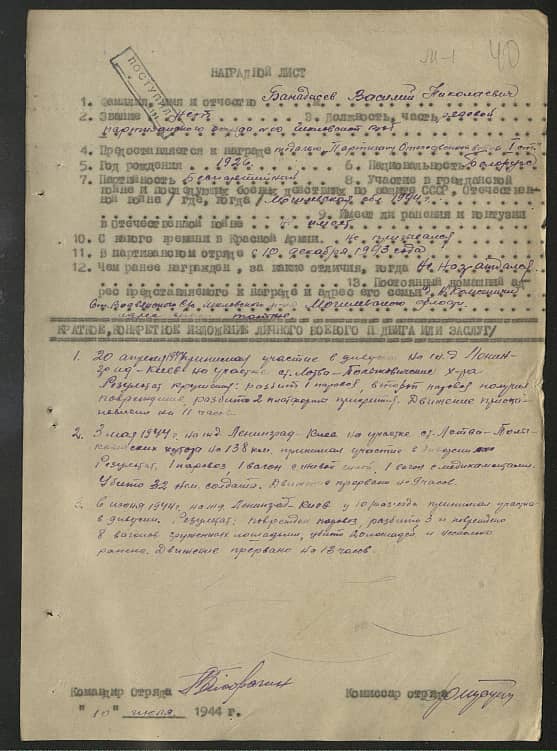 М-1 40
ПОСТУПИЛ
НАГРАДНОЙ ЛИСТ
1. Фамилия, имя и отчество Банадысев Василий Николаевич
2. Звание нет 3. Должность, часть рядовой
партизанского отряда №10 Шкловской
4. Представляется к награде медалью "Партизану Отечественной войны" I ст.
5. Год рождения 1926 6. Национальность Белорус
7. Партийность Беспартийный 8. Участие в гражданской
войне и последующих боевых действиях по защите СССР, Отечествен-
ной войне /где, когда/ Могилевская обл 1944 г.
9. Имеет ли ранения и контузии
в Отечественной войне не имеет
10. С какого времени в Красной Армии. Не призывался
11. В партизанском отряде с 10 декабря 1943 года
12. Чем ранее награжден, за какие отличия, когда Не награждался
13. Постоянный домашний ад-
рес представляемого к награде и адрес его семьи
Могилевской области
КРАТКОЕ, КОНКРЕТНОЕ ИЗЛОЖЕНИЕ ЛИЧНОГО БОЕВОГО ПОДВИГА ИЛИ ЗАСЛУГ/
1. 20 апреля 1944 принимал участие в диверсии на ж.д Ленин-
град-Киев на участке ст. Лотва-Полыковические х-ра
Результат крушения: разбит 1 паровоз, второй паровоз получил
повреждение, разбито 2 платформы. Движение приоста-
новлено на 11 час.
2. 3 мая 1944 г. на ж.д Ленинград-Киев на участке ст. Лотва-Полы-
ковические хутора на 138 км. принимал участие в диверсии
Результат, 1 паровоз, 1 вагон с живой силой, 1 вагон с медикаментами.
Убито 32 нем. солдата. Движение прервано на 9 часов.
3. 6 июня 1944 г. на ж.д Ленинград-Киев у 10 разъезда принимал участие
в диверсии. Результат: поврежден паровоз, разбито 3 и повреждено
8 вагонов груженных лошадьми, убито 20 лошадей и несколько
ранено. Движение прервано на 13 часов.
Командир Отряда Комиссар отряда
"10" июля 1944 г.